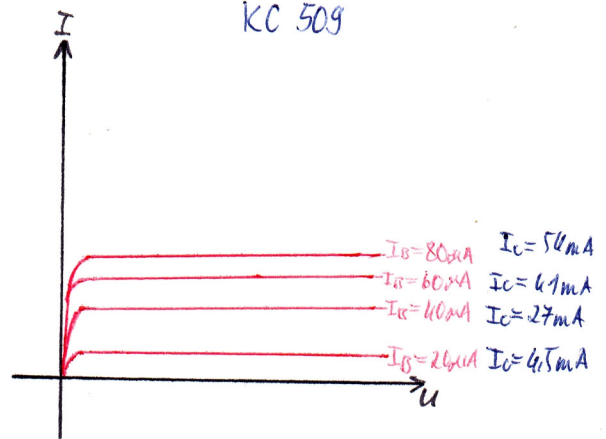 KC 509
I
I_B=80µA I_C=54mA
I_B=60µA I_C=41mA
I_B=40µA I_C=27mA
I_B=20µA I_C=4,5mA
U